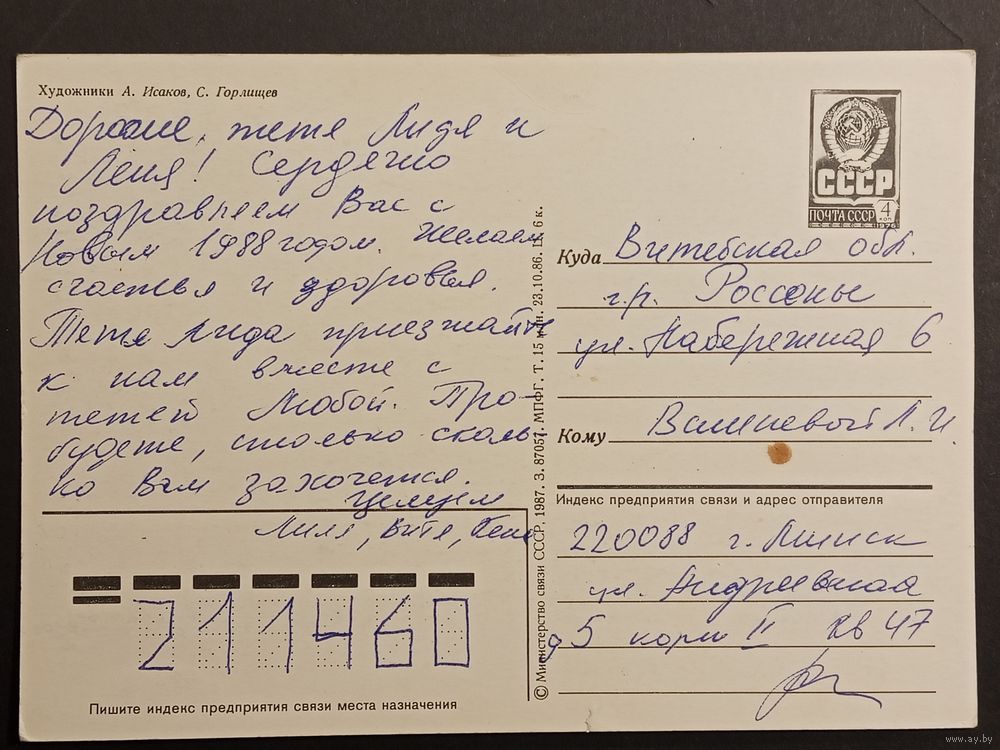 Художники А. Исаков, С. Горлищев
Дорогие, тетя Лидя и
Леня! Сердечно
поздравляем Вас с
Новым 1988 годом. Желаем
счастья и здоровья.
Тетя Лида приезжайте
к нам вместе с
тетей Любой. Про-
будете, столько сколь-
ко Вам захочется.
Целуем
Лиля, Витя,
СССР
ПОЧТА СССР 4 КОП
1976
Куда Витебская обл.
г.п. Россоны
ул. Набережная 6
Кому Л. И.
Индекс предприятия связи и адрес отправителя
220088 г. Минск
ул.
д 5 корп II кв 47
© Министерство связи СССР, 1987. З. 87057. МПФГ. Т. 15 млн. 23.10.86. Ц. 6 к.
211460
Пишите индекс предприятия связи места назначения
www.ay.by